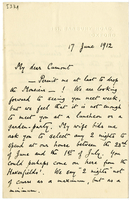 17 June 1912
My dear Cumont
— Permit us at last to drop
the Monsieur — ! We are looking
forward to seeing you next week,
but we feel that it is not enough
to meet you at a luncheon or a
garden-party. My wife bids me
ask you to select any 2 nights to
spend at our house between the 23rd
of June and the 1st of July. You
could perhaps come on here from the
We say 2 nights not
of course as a maximum, but as a
minimum.